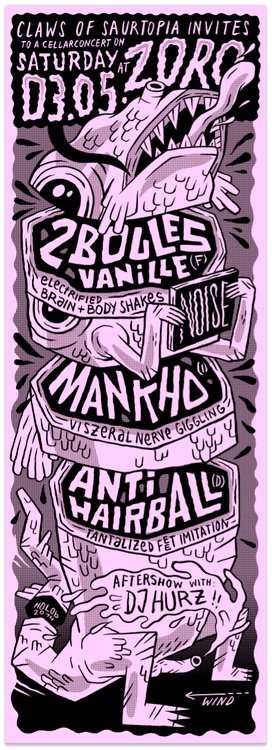 CLAWS OF SAURTOPIA INVITES
TO A CELLARCONCERT ON
SATURDAY AT ZORO
03.05.
2 BOULES
VANILLE (F)
ELECTRIFIED
BRAIN + BODY SHAKES
NOISE
MANKHO (I)
VISZERAL NERVE GIGGLING
ANTI
HAIRBALL (D)
TANTALIZED FET IMITATION
AFTERSHOW WITH:
DJ HURZ !!
HOLOB
2014
WIND